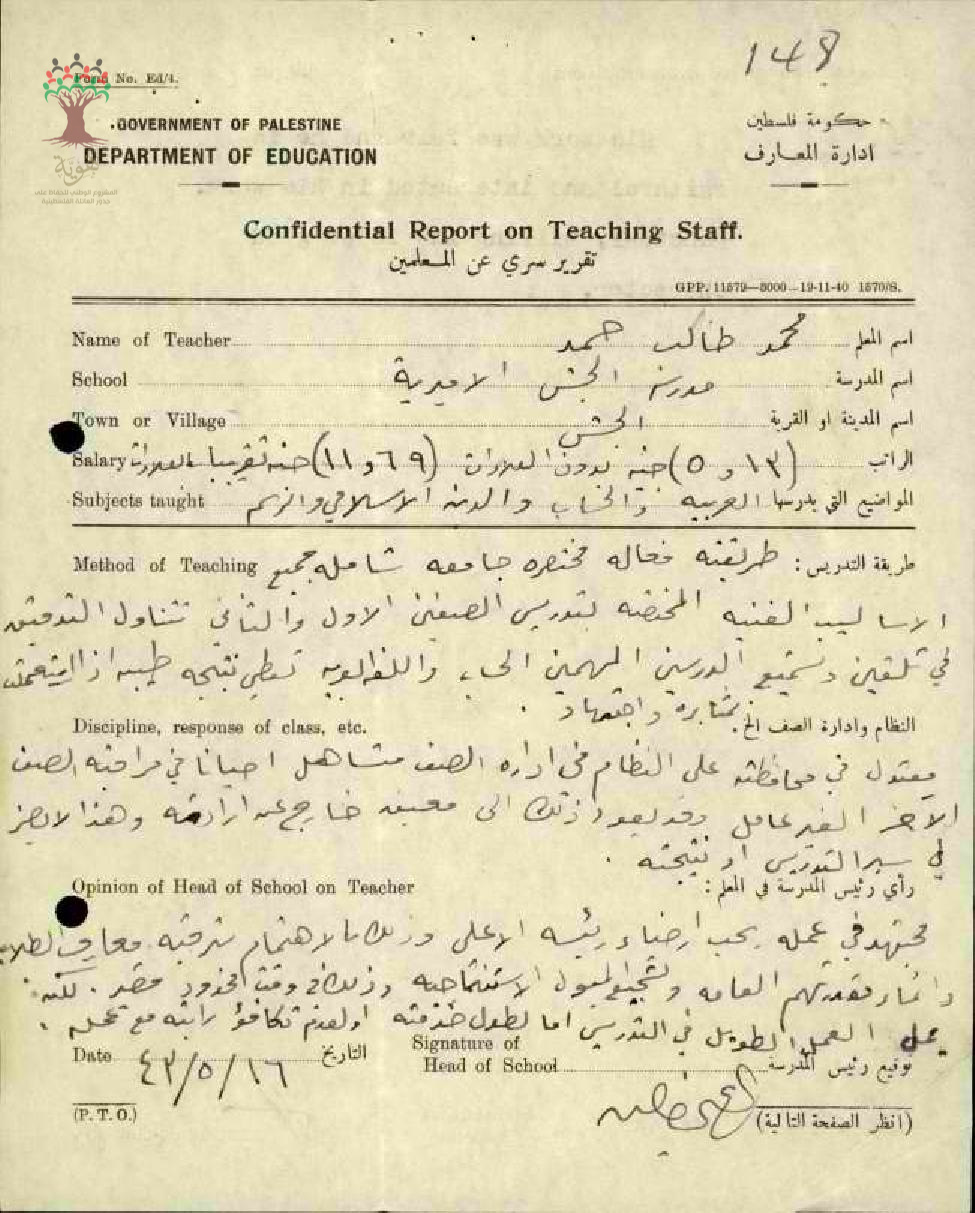 148
Form No. Ed/4.
GOVERNMENT OF PALESTINE
حكومة فلسطين
DEPARTMENT OF EDUCATION
ادارة المعارف
هوية
المشروع الوطني للحفاظ على
جذور العائلة الفلسطينية
Confidential Report on Teaching Staff.
تقرير سري عن المعلمين
GPP. 11579—5000—19-11-40 1570/S.
Name of Teacher محمد طالب حمد اسم المعلم
School مدرسة الجش الاميرية اسم المدرسة
Town or Village الجش اسم المدينة او القرية
Salary (١٣ و ٥) جنيه بدون العلاوات (٦٩ و ١١) جنيه تقريبا مع العلاوات الراتب
Subjects taught العربيه والحساب والدين الاسلامي والرسم المواضيع التي يدرسها
Method of Teaching طريقته فعاله مختصره جامعه شامله جميع طريقة التدريس:
الاساليب الفنيه المختصه بتدريس الصفين الاول والثاني تتناول التدقيق
في تلقين وتسميع الدرسين المهمين الحساب واللغة العربيه تعطي نتيجه طيبه اذا استعملت
بمثابره واجتهاد.
Discipline, response of class, etc. النظام وادارة الصف الخ.
معتدل في محافظته على النظام في اداره الصف متساهل احيانا في مراقبة الصف
الاخر الغير عامل وقد يعود ذلك الى خارج عن ارادته وهذا لا يضر
في سير التدريس او نتيجته.
Opinion of Head of School on Teacher رأي رئيس المدرسة في المعلم:
مجتهد في عمله يحب ارضاء رئيسه الاعلى وذلك بالاهتمام بترقية معارف الطلاب
مقدرتهم العامه وتشجيع الميول وذلك في وقت لكنه
يمل العمل الطويل في التدريس اما لطول خدمته او لعدم تكافؤ راتبه مع عمله.
Date ١٦/٥/٤٣ التاريخ
Signature of
Head of School توقيع رئيس المدرسة
(P. T. O.)
(انظر الصفحة التالية)